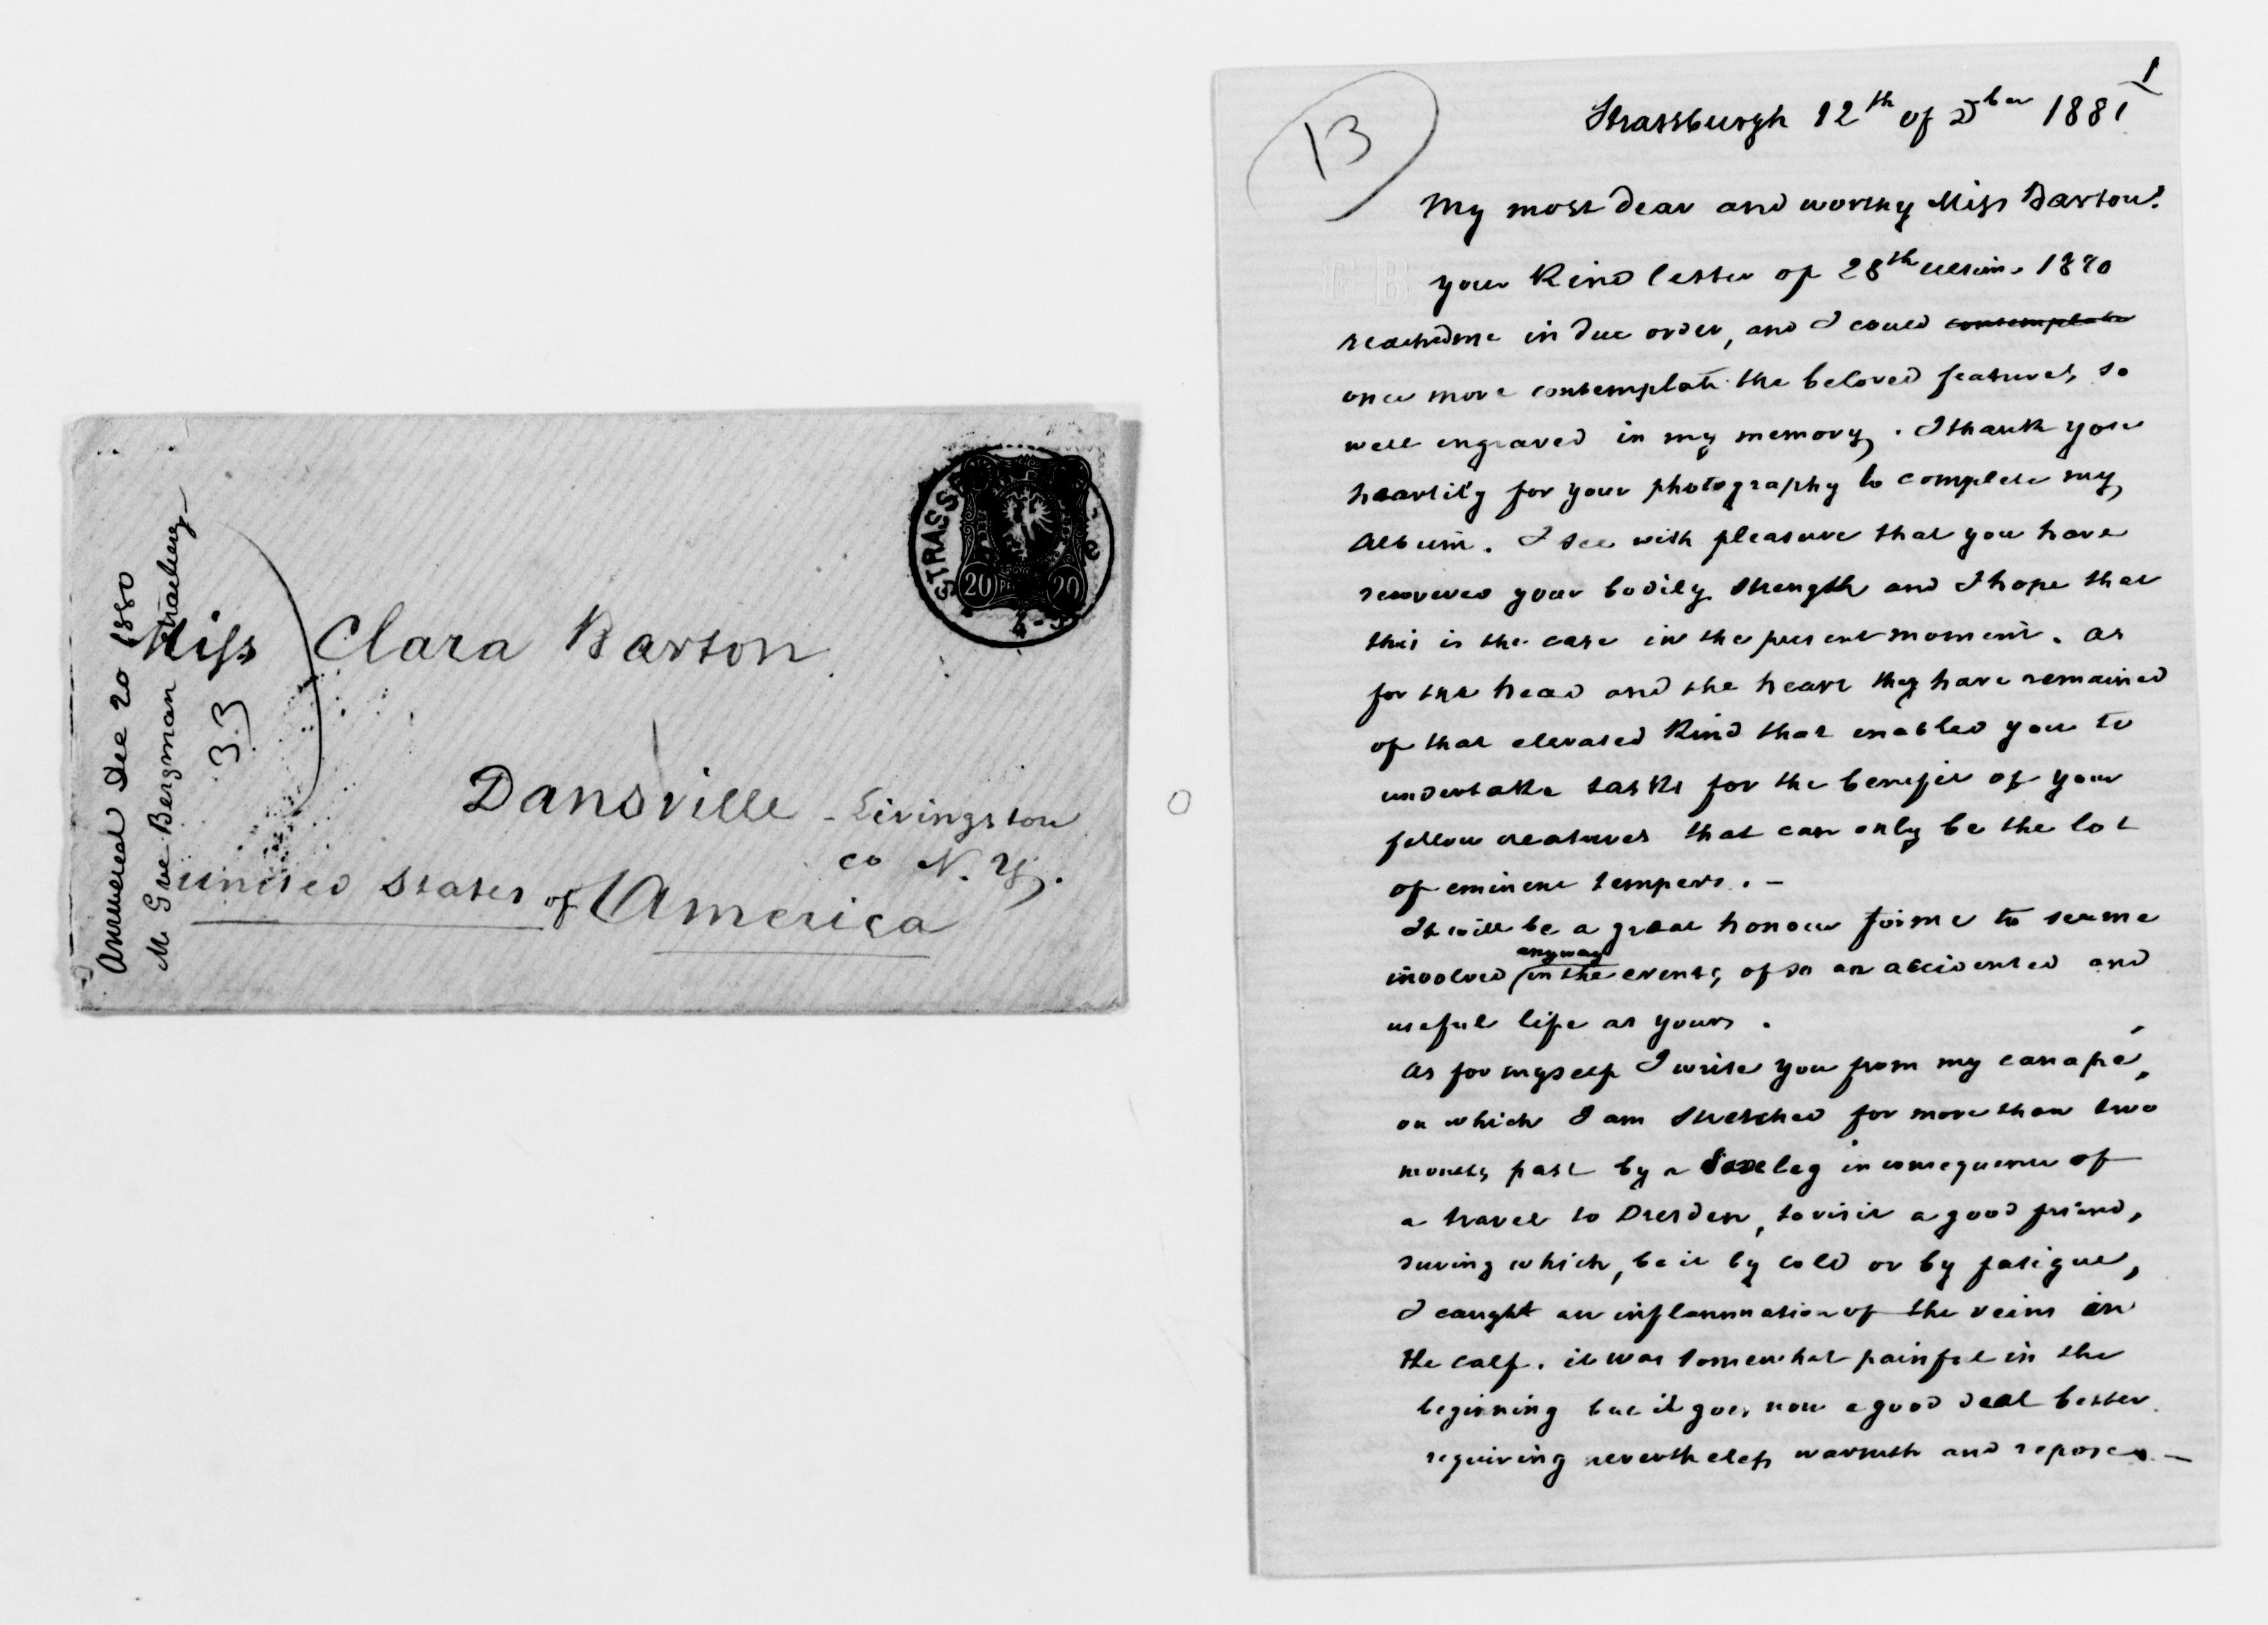 Answered Dec 20 1880
M. Gve Bergman Strasburg
33
STRASSB
20 20
Miss Clara Barton
Dansville - Livingston
co N. Y.
United States of America
13
1
Strassburgh 12th of Dber 1881
My most dear and worthy Miss Barton!
C B
your Kind letter of 28th 1880
reached me in due order, and I could contemplate
once more contemplate the beloved features, so
well engraved in my memory. I thank you
heartily for your photography to complete my
Album. I see with pleasure that you have
recovered your bodily strength and I hope that
this is the case in the present moment. as
for the head and the heart they have remained
of that elevated Kind that enabled you to
undertake tasks for the benefit of your
fellow creatures that can only be the lot
of eminent tempers. -
It will be a great honour for me to seeme
anyway
involved in the events, of so an accidented and
useful life as yours.
As for myself I write you from my canapé,
on which I am stretched for more than two
months past by a leg in consequence of
a travel to Dresden, to visit a good friend,
during which, be it by cold or by fatigue,
I caught an inflammation of the veins in
the calf. it was somewhat painful in the
beginning but it goes now a good deal better
requiring nevertheless warmth and repose. -